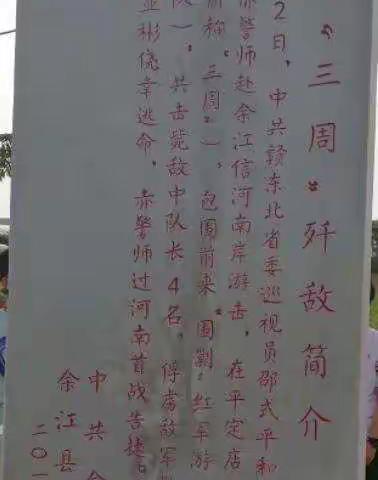 “三周”歼敌简介
2日，中共赣东北省委巡视员邵式平和
赤警师赴余江信河南岸游击，在平定店
称“三周”），包围前来“围剿”红军游
队）。共击毙敌中队长4名，俘虏敌军
亚彬侥幸逃命。赤警师过河南首战告捷。
中共余
余江县
二〇一